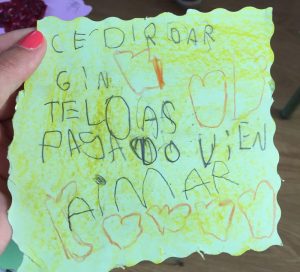 CE'DIROAR
GIN
TELOAS
PASADO VIEN
AIMAR